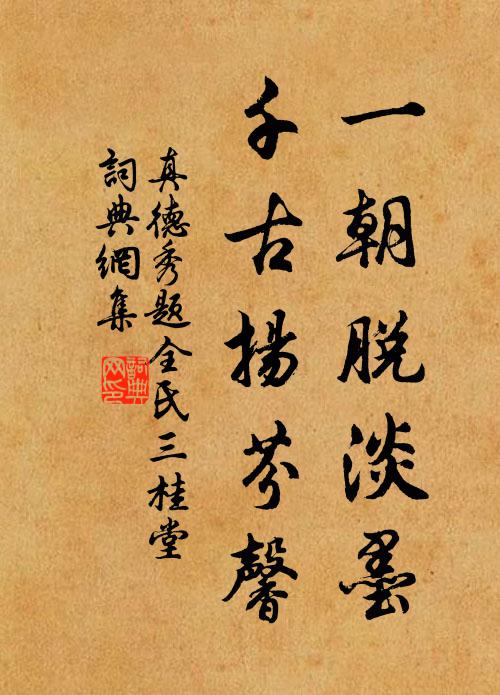 一朝脫淡墨
千古揚芬馨
真德秀題全氏三桂堂
詞典網集
詞典网印